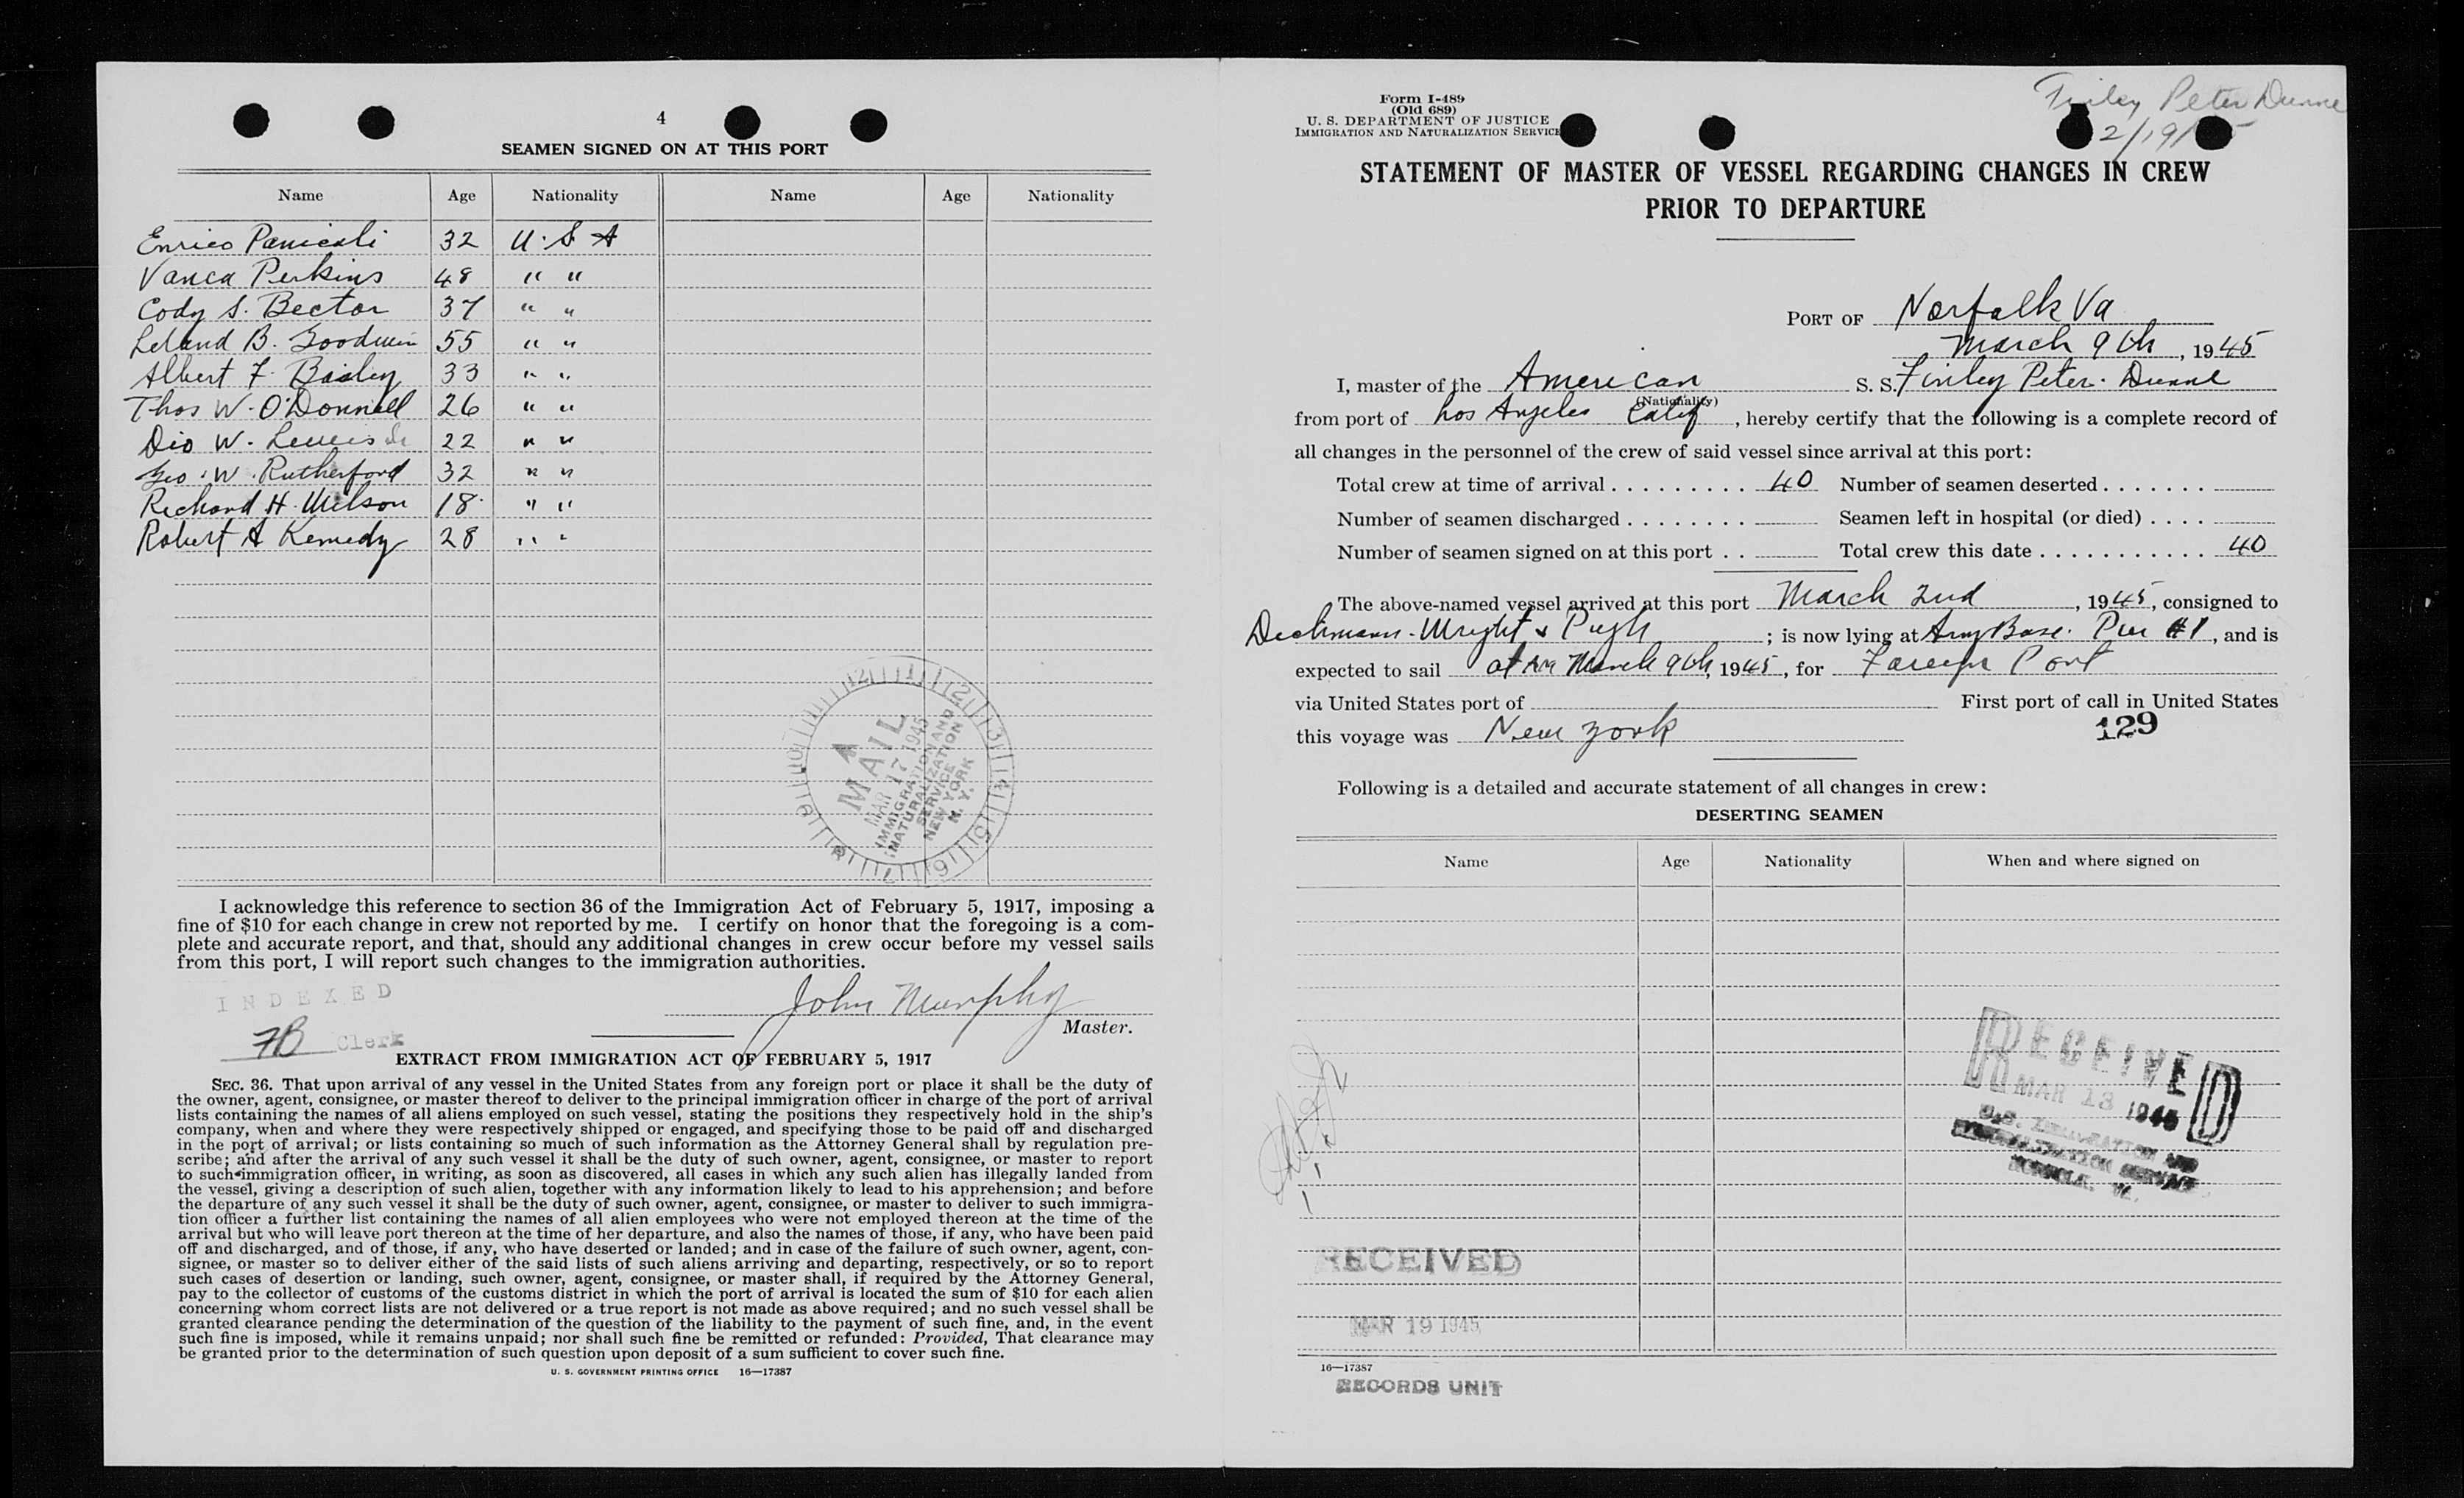 4
SEAMEN SIGNED ON AT THIS PORT
Name Age Nationality Name Age Nationality
Enrico Panicali 32 U.S A
Vanca Perkins 48 " "
Cody S. Bector 37 " "
Leland B. Goodwin 55 " "
Albert F. Bailey 33 " "
Thos W. O'Donnell 26 " "
Dio W. Lewis Jr 22 " "
Geo. W. Rutherford 32 " "
Richard H. Wilson 18 " "
Robert A Kennedy 28 " "
MAIL
MAR 17 1945
IMMIGRATION AND
NATURALIZATION
SERVICE
NEW YORK
N. Y.
I acknowledge this reference to section 36 of the Immigration Act of February 5, 1917, imposing a
fine of $10 for each change in crew not reported by me. I certify on honor that the foregoing is a com-
plete and accurate report, and that, should any additional changes in crew occur before my vessel sails
from this port, I will report such changes to the immigration authorities.
INDEXED
John Murphy
Master.
7B Clerk
EXTRACT FROM IMMIGRATION ACT OF FEBRUARY 5, 1917
SEC. 36. That upon arrival of any vessel in the United States from any foreign port or place it shall be the duty of
the owner, agent, consignee, or master thereof to deliver to the principal immigration officer in charge of the port of arrival
lists containing the names of all aliens employed on such vessel, stating the positions they respectively hold in the ship's
company, when and where they were respectively shipped or engaged, and specifying those to be paid off and discharged
in the port of arrival; or lists containing so much of such information as the Attorney General shall by regulation pre-
scribe; and after the arrival of any such vessel it shall be the duty of such owner, agent, consignee, or master to report
to such immigration officer, in writing, as soon as discovered, all cases in which any such alien has illegally landed from
the vessel, giving a description of such alien, together with any information likely to lead to his apprehension; and before
the departure of any such vessel it shall be the duty of such owner, agent, consignee, or master to deliver to such immigra-
tion officer a further list containing the names of all alien employees who were not employed thereon at the time of the
arrival but who will leave port thereon at the time of her departure, and also the names of those, if any, who have been paid
off and discharged, and of those, if any, who have deserted or landed; and in case of the failure of such owner, agent, con-
signee, or master so to deliver either of the said lists of such aliens arriving and departing, respectively, or so to report
such cases of desertion or landing, such owner, agent, consignee, or master shall, if required by the Attorney General,
pay to the collector of customs of the customs district in which the port of arrival is located the sum of $10 for each alien
concerning whom correct lists are not delivered or a true report is not made as above required; and no such vessel shall be
granted clearance pending the determination of the question of the liability to the payment of such fine, and, in the event
such fine is imposed, while it remains unpaid; nor shall such fine be remitted or refunded: Provided, That clearance may
be granted prior to the determination of such question upon deposit of a sum sufficient to cover such fine.
U. S. GOVERNMENT PRINTING OFFICE 16—17387
Form I-489
(Old 689)
U. S. DEPARTMENT OF JUSTICE
IMMIGRATION AND NATURALIZATION SERVICE
Finley Peter Dunne
2/19/
STATEMENT OF MASTER OF VESSEL REGARDING CHANGES IN CREW
PRIOR TO DEPARTURE
PORT OF Norfolk Va
March 9th, 1945
I, master of the American S. S. Finley Peter. Dunne
(Nationality)
from port of Los Angeles Calif, hereby certify that the following is a complete record of
all changes in the personnel of the crew of said vessel since arrival at this port:
Total crew at time of arrival . . . . . . . . . 40 Number of seamen deserted . . . . . . .
Number of seamen discharged . . . . . . . . Seamen left in hospital (or died) . . . .
Number of seamen signed on at this port . . Total crew this date . . . . . . . . . . . 40
The above-named vessel arrived at this port March 2nd, 1945, consigned to
Dichmann. Wright & Pugh ; is now lying at Army Base. Pier #1, and is
expected to sail March 9th, 1945, for Foreign Port
via United States port of First port of call in United States
this voyage was New York
129
Following is a detailed and accurate statement of all changes in crew:
DESERTING SEAMEN
Name Age Nationality When and where signed on
RECEIVED
MAR 13 1945
U.S. IMMIGRATION AND
NATURALIZATION SERVICE
NORFOLK, VA.
RECEIVED
MAR 19 1945
16—17387
RECORDS UNIT